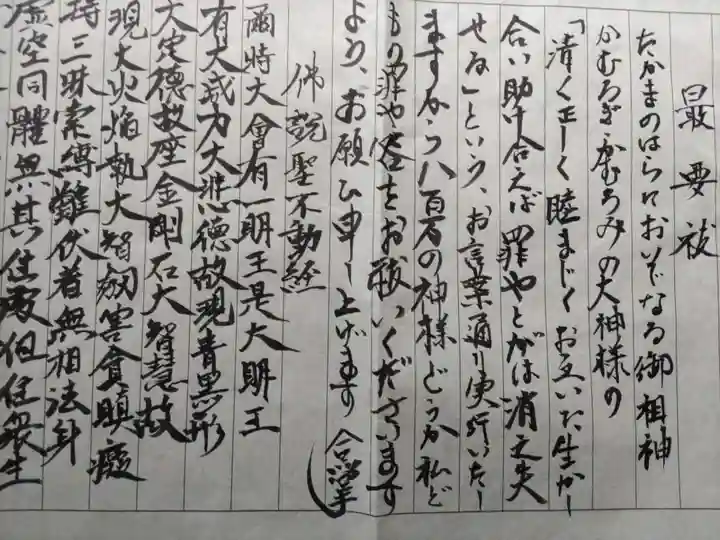 最要祓
たかまのはらにおいでなる御祖神
かむろぎかむろみの大神様の
「清く正しく睦まじくお互いた生かし
合い助け合えば罪やとがは消え失
せる」という、お言葉通り実行いたし
ますから八百万の神様どうか私ど
もの罪や咎をお祓いくださいます
よう、お願い申し上げます 合掌
佛説聖不動経
爾時大會有一明王是大明王
有大威力大悲徳故現青黒形
大定徳故座金剛石大智慧故
現大火焔執大智剣害貪瞋癡
持三昧索縛難伏者無相法身
虚空同體無其住處但住衆生